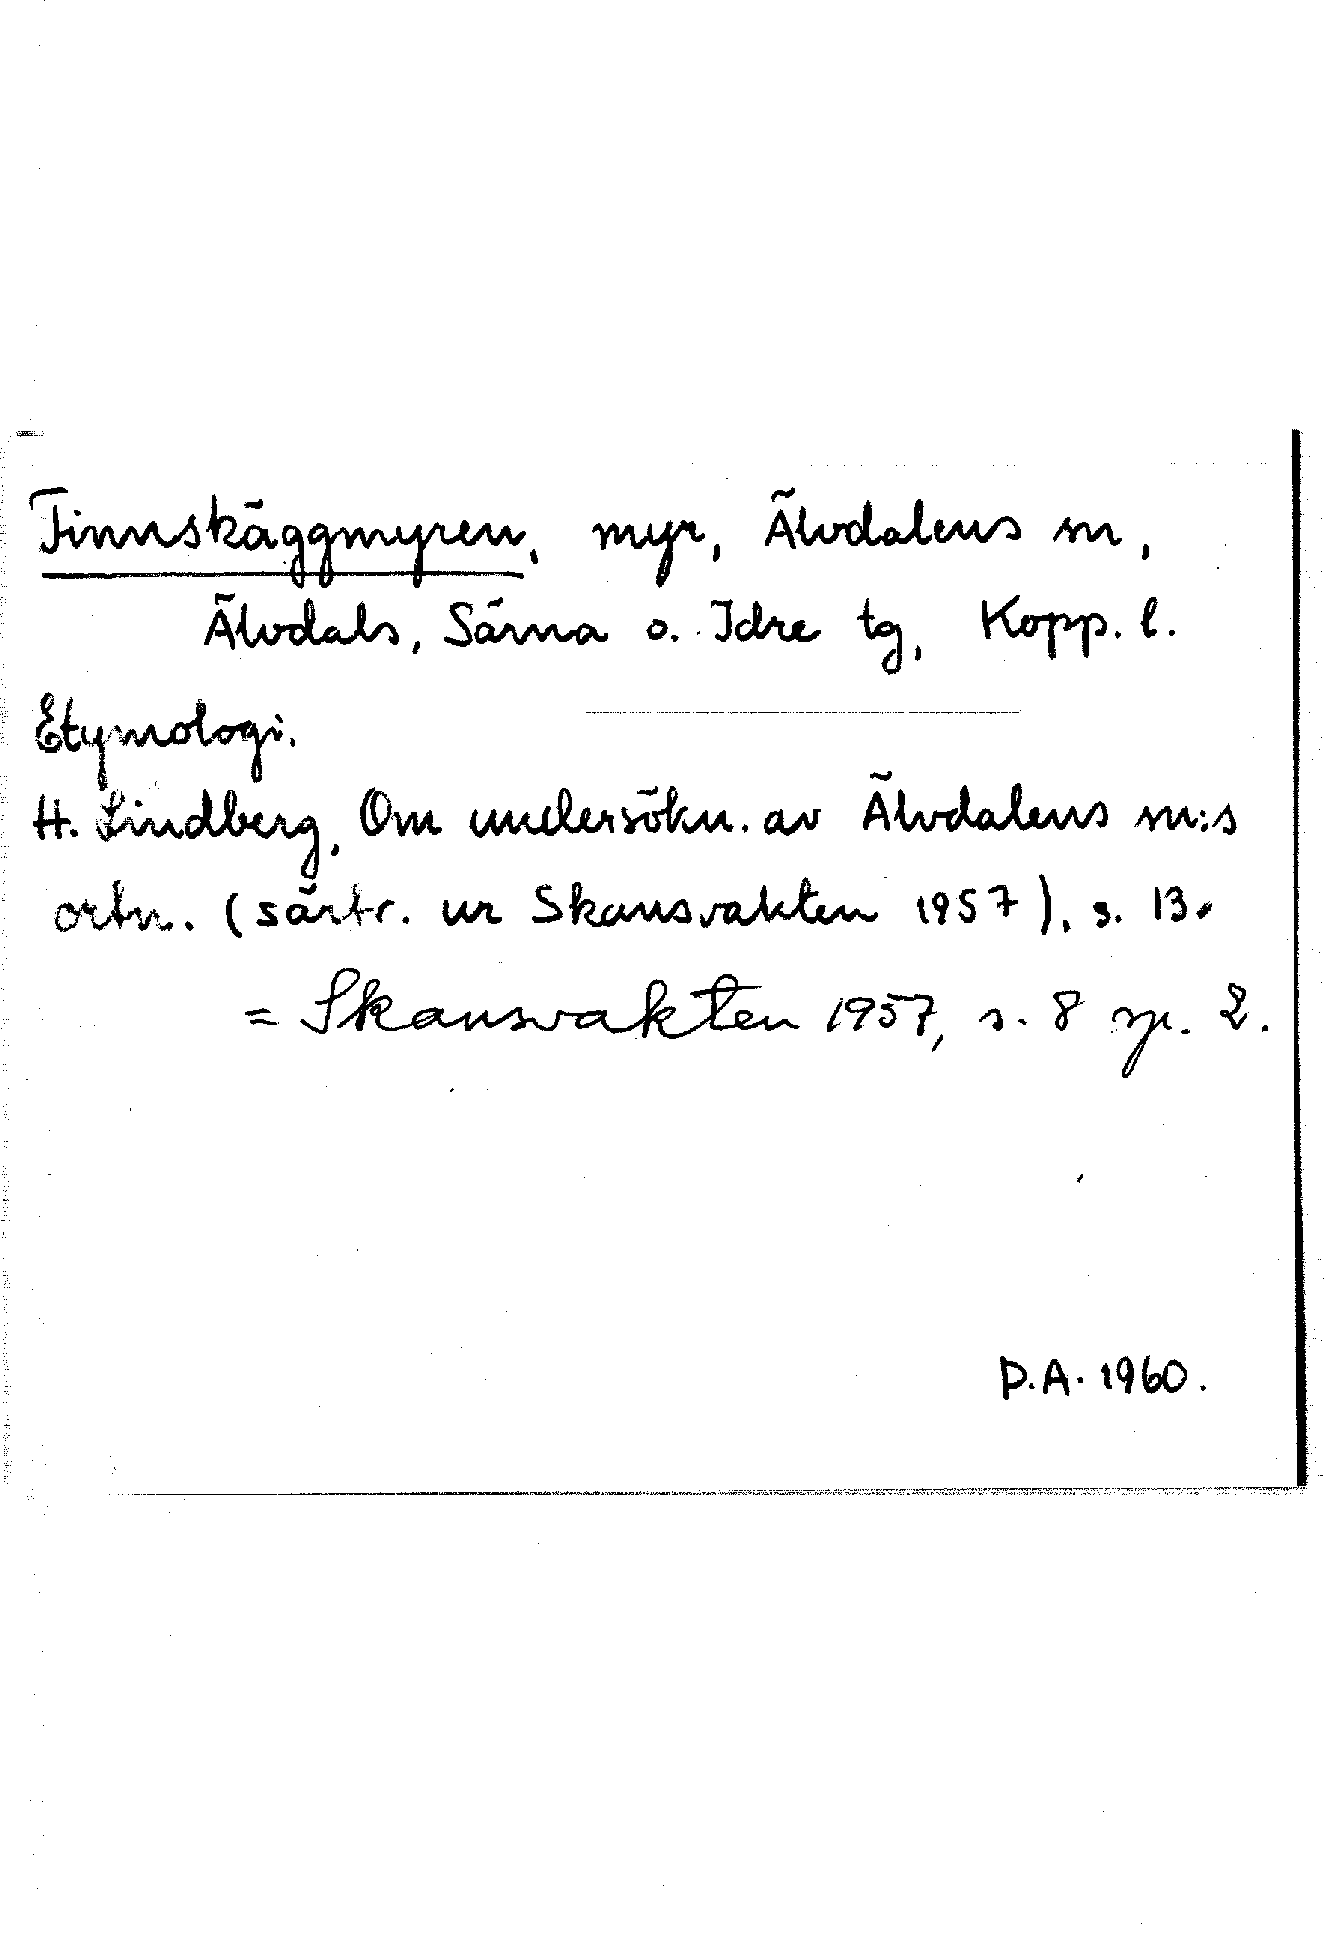 Finnskäggmyren, myr, Älvdalens sn,
Älvdals, Särna o. Idre tg, Kopp. l.
Etymologi.
H. Lindberg, Om undersökn. av Älvdalens sn:s
ortn. (särtr. ur Skansvakten 1957), s. 13.
= Skansvakten 1957, s. 8 sp. 2.
D.A. 1960.